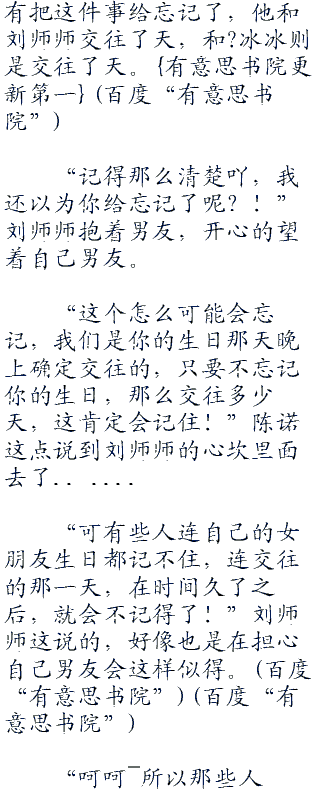 有把这件事给忘记了，他和
刘师师交往了天，和?冰冰则
是交往了天。{有意思书院更
新第一}(百度“有意思书
院”)
“记得那么清楚吖，我
还以为你给忘记了呢？！”
刘师师抱着男友，开心的望
着自己男友。
“这个怎么可能会忘
记，我们是你的生日那天晚
上确定交往的，只要不忘记
你的生日，那么交往多少
天，这肯定会记住！”陈诺
这点说到刘师师的心坎里面
去了．．．．．．
“可有些人连自己的女
朋友生日都记不住，连交往
的那一天，在时间久了之
后，就会不记得了！”刘师
师这说的，好像也是在担心
自己男友会这样似得。(百度
“有意思书院”)(百度“有
意思书院”)
“呵呵¯所以那些人